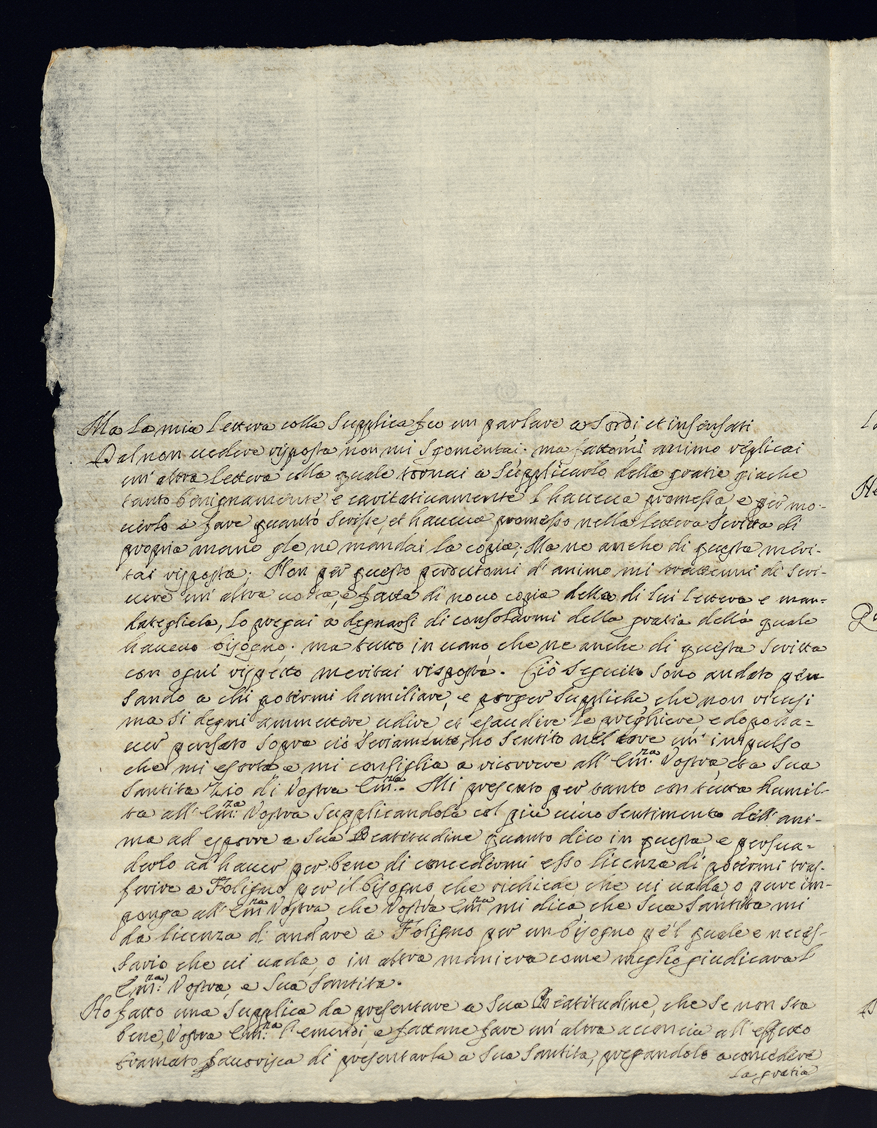 Ma la mia lettera colla Supplica feo un parlare a Sordi et insensati
Dal non vedere risposta non mi sgomentai: ma fattomi animo replicai
un' altra lettera colla quale tornai a Supplicarlo della gratia giache
tanto benignamente e caritativamente l' haueua promessa e per mo-
uerlo a fare quanto Scrisse et haueua promesso nella lettera Scritta di
propria mano gle ne mandai la copia; Ma ne anche di questa meri-
tai risposta; Non per questo perdutomi d' animo mi trattenni di Scri-
uere un' altra uolta, e fatta di nouo copia della di lui lettera e man-
datagliela, lo pregai a degnarsi di consolarmi della gratia della quale
haueuo bisogno: ma tutto in uano che ne anche di questa Scritta
con ogni rispetto meritai risposta. Ciò Seguito Sono andato pen-
Sando a chi potermi humiliare, e porger Suppliche, che non ricusi
ma si degni ammettere udire et esaudire le preghiere e dopo ha-
uer pensato Sopra ciò Seriamente, ho Sentito nel core un' impulso
che mi esorta e mi consiglia a ricorrere all' Em.za Vostra, et a Sua
Santita Zio di Vostra Em.za. Mi presento per tanto con tutta humil-
ta all' Em.za Vostra Supplicandola col piu uiuo Sentimento dell' ani-
ma ad esporre a Sua Beatitudine quanto dico in questa, e persua-
derlo ad hauer per bene di concedermi esso licenza di potermi tras-
ferire a Foligno per il bisogno che richiede che ui uada, o pure im-
ponga all' Em.za Vostra che Vostra Em.za mi dica che Sua Santita mi
da licenza di andare a Foligno per un bisogno p'el quale e neces-
Sario che ui uada, o in altra maniera come meglio giudicara l'
Em.za Vostra, e Sua Santita.
Ho fatto una Supplica da presentare a Sua Beatitudine, che Se non Sta
bene, Vostra Em.za l' emendi, e fattane fare un' altra acconcia all' effetto
bramato fauorisca di presentarla a Sua Santita, pregandolo a concedere
la gratia